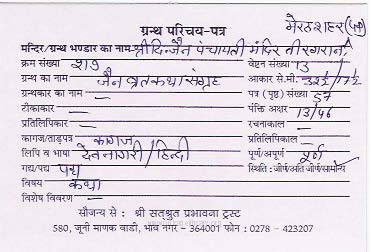 मेरठ शहर (यूपी)
ग्रन्थ परिचय-पत्र
मन्दिर/ग्रन्थ भण्डार का नाम- श्री दि. जैन पंचायती मंदिर तीरगरान
क्रम संख्या २१७ वेष्टन संख्या 13
ग्रन्थ का नाम जैन व्रतकथा संग्रह आकार से.मी. 32½/17½
ग्रन्थकार का नाम — पत्र (पृष्ठ) संख्या 57
टीकाकार — पंक्ति अक्षर 13/46
प्रतिलिपिकार — रचनाकाल —
कागज/ताड़पत्र कागज प्रतिलिपिकाल —
लिपि व भाषा देवनागरी/हिन्दी पूर्ण/अपूर्ण पूर्ण
गद्य/पद्य पद्य स्थिति : जीर्ण/अति जीर्ण/सामान्य
विषय कथा
विशेष विवरण —
सौजन्य से : श्री सत्श्रुत प्रभावना ट्रस्ट
580, जूनी माणक वाडी, भाव नगर - 364001 फोन : 0278 - 423207